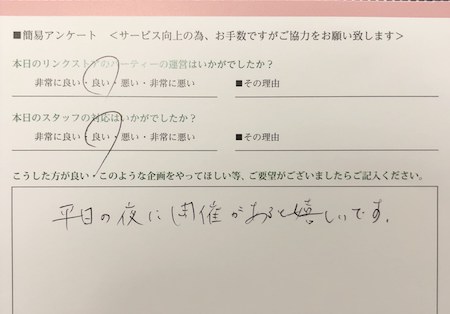 ■簡易アンケート　＜サービス向上の為、お手数ですがご協力をお願い致します＞
本日のリンクストアのパーティーの運営はいかがでしたか？
非常に良い・良い・悪い・非常に悪い　■その理由
本日のスタッフの対応はいかがでしたか？
非常に良い・良い・悪い・非常に悪い　■その理由
こうした方が良い・このような企画をやってほしい等、ご要望がございましたらご記入ください。
平日の夜に開催があると嬉しいです。